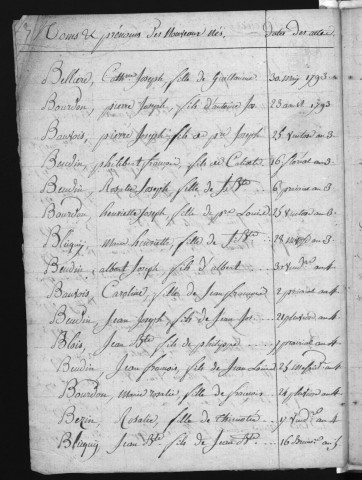 Noms & prénoms des Nouveaux Nés. Dates des actes
Bellart, Cathne Joseph, fille de Guillaume 30 may 1793
Bourdon, pierre Joseph, fils d'antoine Jos. 23 avril 1793
Bauvois, pierre Joseph, fils de pre Joseph 25 ventose an 3.
Beudin, philibert françois, fils de Celeste 16 floréal an 3.
Beudin, Rosalie Joseph, fille de J. Bte 6 prairial an 3
Bourdon, henriette Joseph, fille de pre Louis 25 ventose an 3.
Bluquy, Marie henriette, fille de J. Bte 28 nivose an 3.
Beudin, albert Joseph fils d'albert 30 vendre an 4
Bauvois Caroline, fille de Jean françois 2 prairial an 4
Beudin, Jean Joseph fils de Jean Jos. 21 pluviose an 4
Blois, Jean Bte fils de philippe prairial an 4
Beudin, Jean françois, fils de Jean Louis 25 messidor an 4
Bourdon Marie rosalie, fille de françois 24 pluviose an 4
Bezin, Rosalie, fille de vendre an 4
Bluquy, Jean Bte. fils de Jean Bte. 16 Brumre an 5